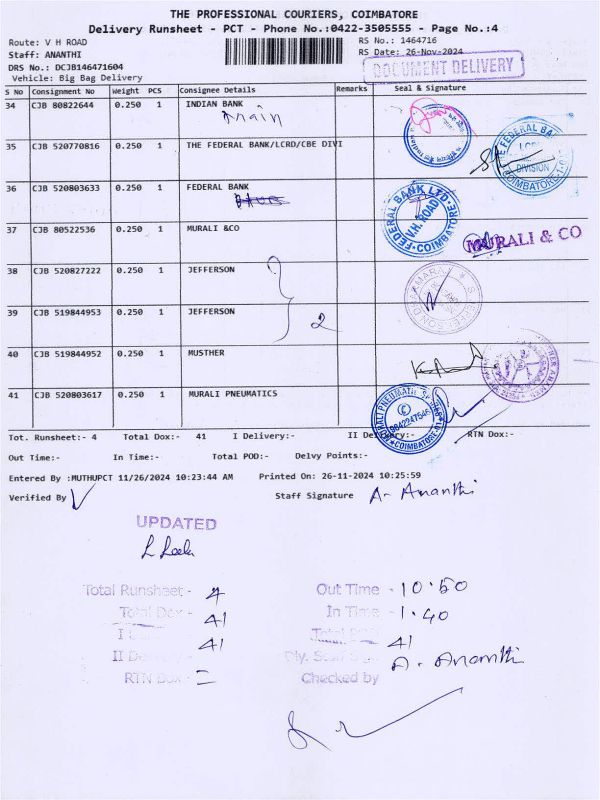 THE PROFESSIONAL COURIERS, COIMBATORE
Delivery Runsheet - PCT - Phone No.:0422-3505555 - Page No.:4
Route: V H ROAD RS No.: 1464716
Staff: ANANTHI RS Date: 26-Nov-2024
DRS No.: DCJB146471604
Vehicle: Big Bag Delivery
DOCUMENT DELIVERY
S No Consignment No Weight PCS Consignee Details Remarks Seal & Signature
34 CJB 80822644 0.250 1 INDIAN BANK
main
35 CJB 520770816 0.250 1 THE FEDERAL BANK/LCRD/CBE DIVI
THE FEDERAL BANK
LCRD
DIVISION
COIMBATORE-1
36 CJB 520803633 0.250 1 FEDERAL BANK
FEDERAL BANK LTD.
V.H. ROAD
COIMBATORE
37 CJB 80522536 0.250 1 MURALI &CO
MURALI & CO
38 CJB 520827222 0.250 1 JEFFERSON
39 CJB 519844953 0.250 1 JEFFERSON
2
40 CJB 519844952 0.250 1 MUSTHER
41 CJB 520803617 0.250 1 MURALI PNEUMATICS
MURALI PNEUMATIC
COIMBATORE
Tot. Runsheet:- 4 Total Dox:- 41 I Delivery:- II Delivery:- RTN Dox:-
Out Time:- In Time:- Total POD:- Delvy Points:-
Entered By :MUTHUPCT 11/26/2024 10:23:44 AM Printed On: 26-11-2024 10:25:59
Verified By Staff Signature A. Ananthi
UPDATED
Total Runsheet - 4 Out Time - 10.50
Total Dox - 41 In Time - 1.40
I 41 Total 41
II Dly. Staff A. Ananthi
RTN Dox - Checked by